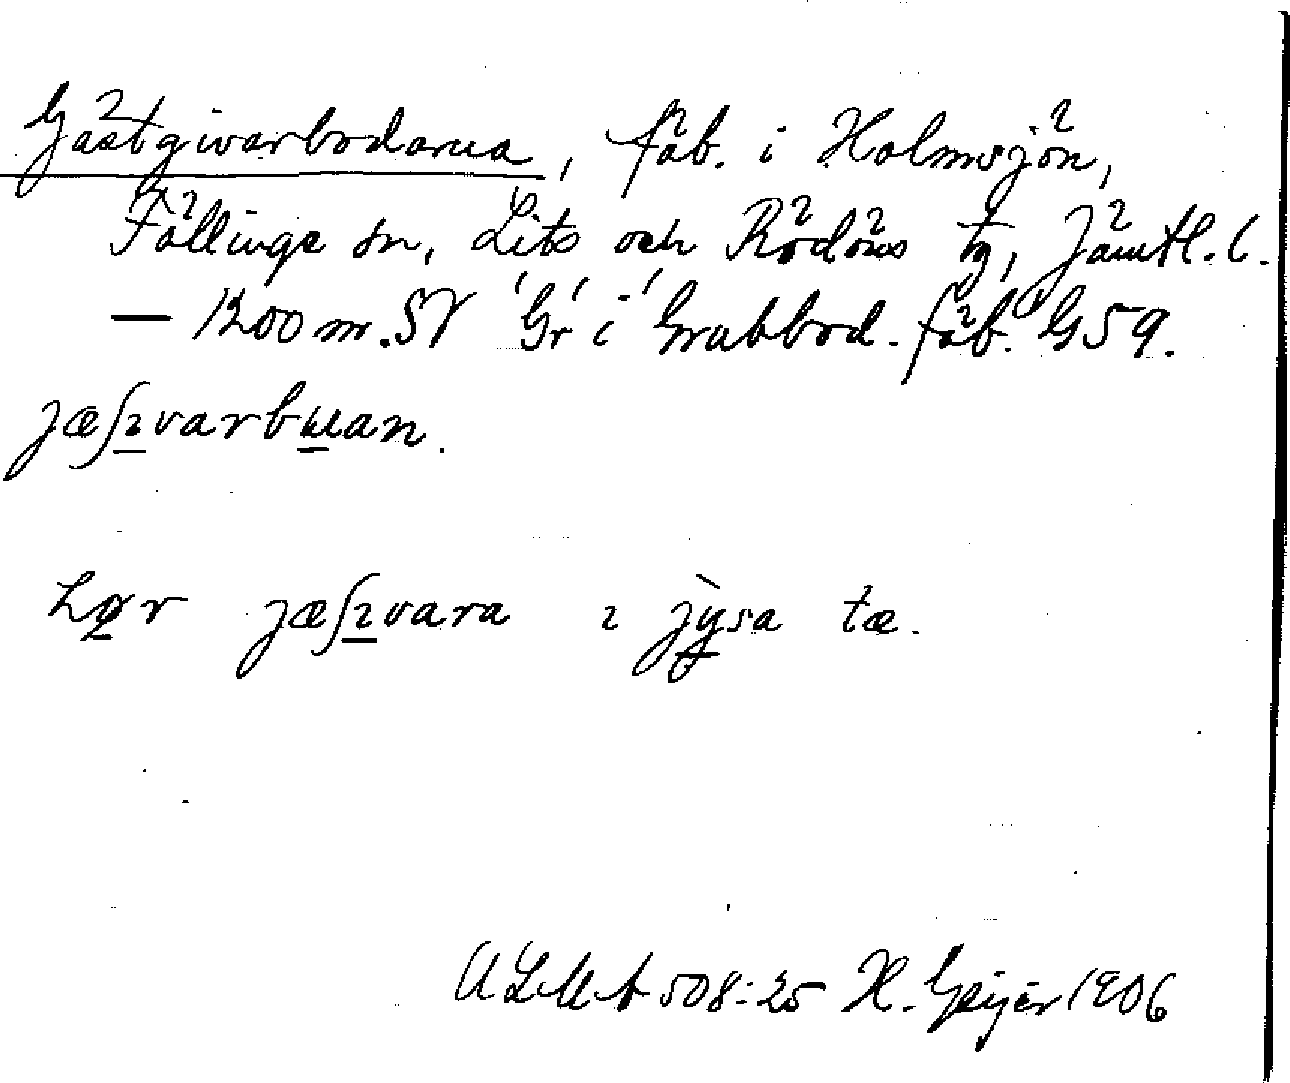 Gästgivarbodarna, fäb. i Holmsjön,
Föllinge sn, Lits och Rödöns tg, Jämtl. l.
— 1200 m. SV 'Gr' i 'Grubbod. fäb.' G59.
jæʃɪvarbuan.
Lør jæʃɪvara ɪ jysa tæ.
ULMA 508:25 H. Geijer 1906